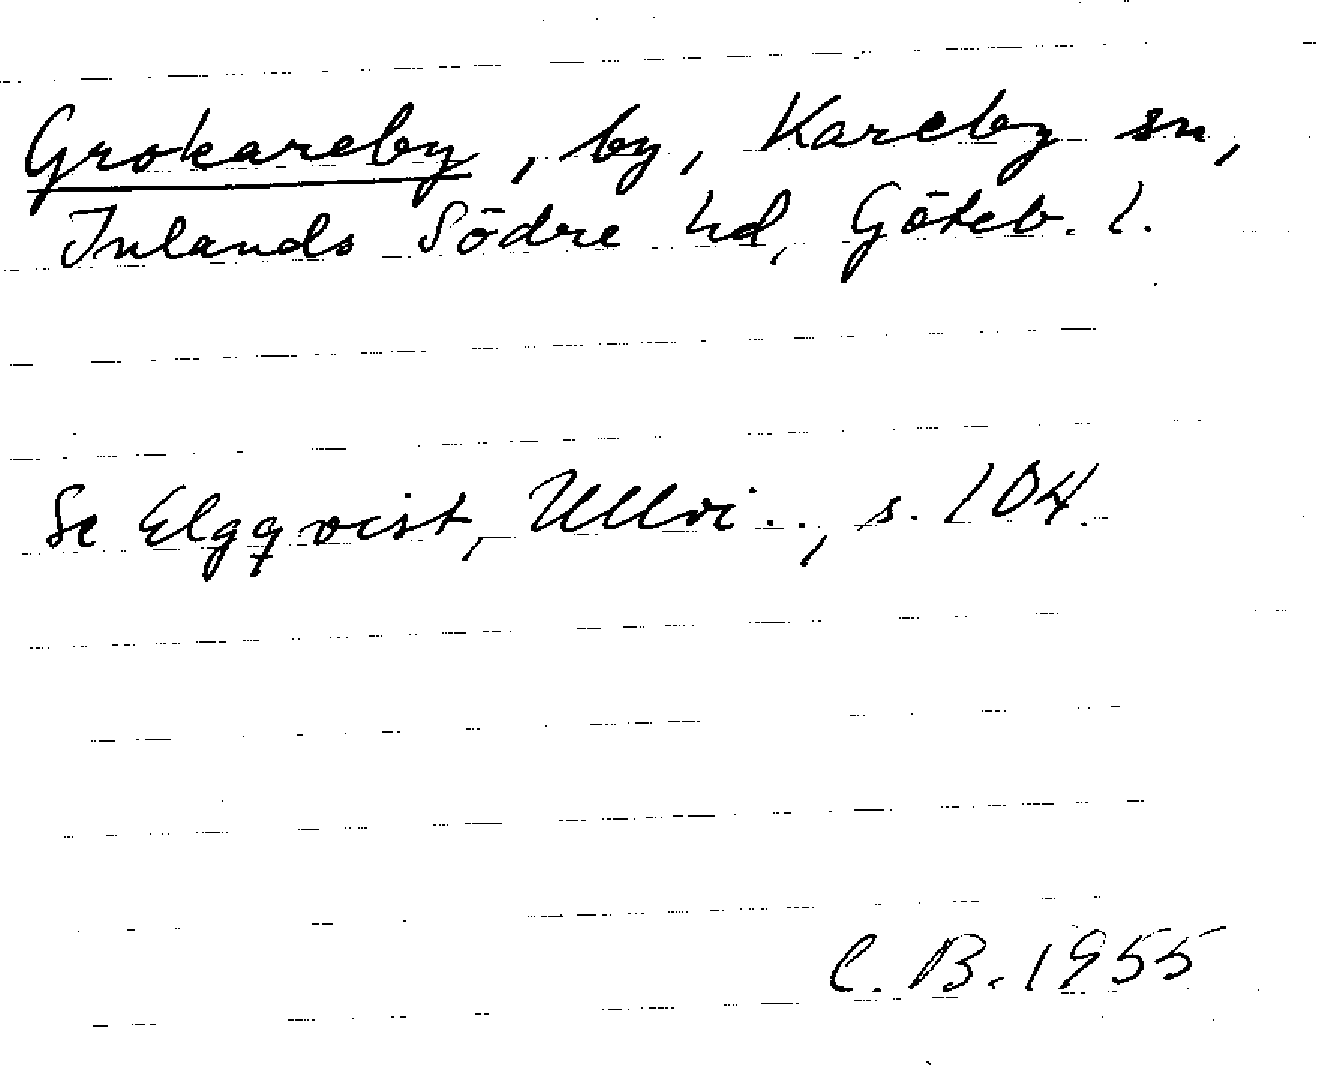 Grokareby, by, Kareby sn,
Inlands Södre hd, Göteb. l.
Se Elgqvist, Ullvi.., s. 104.
C. B. 1955